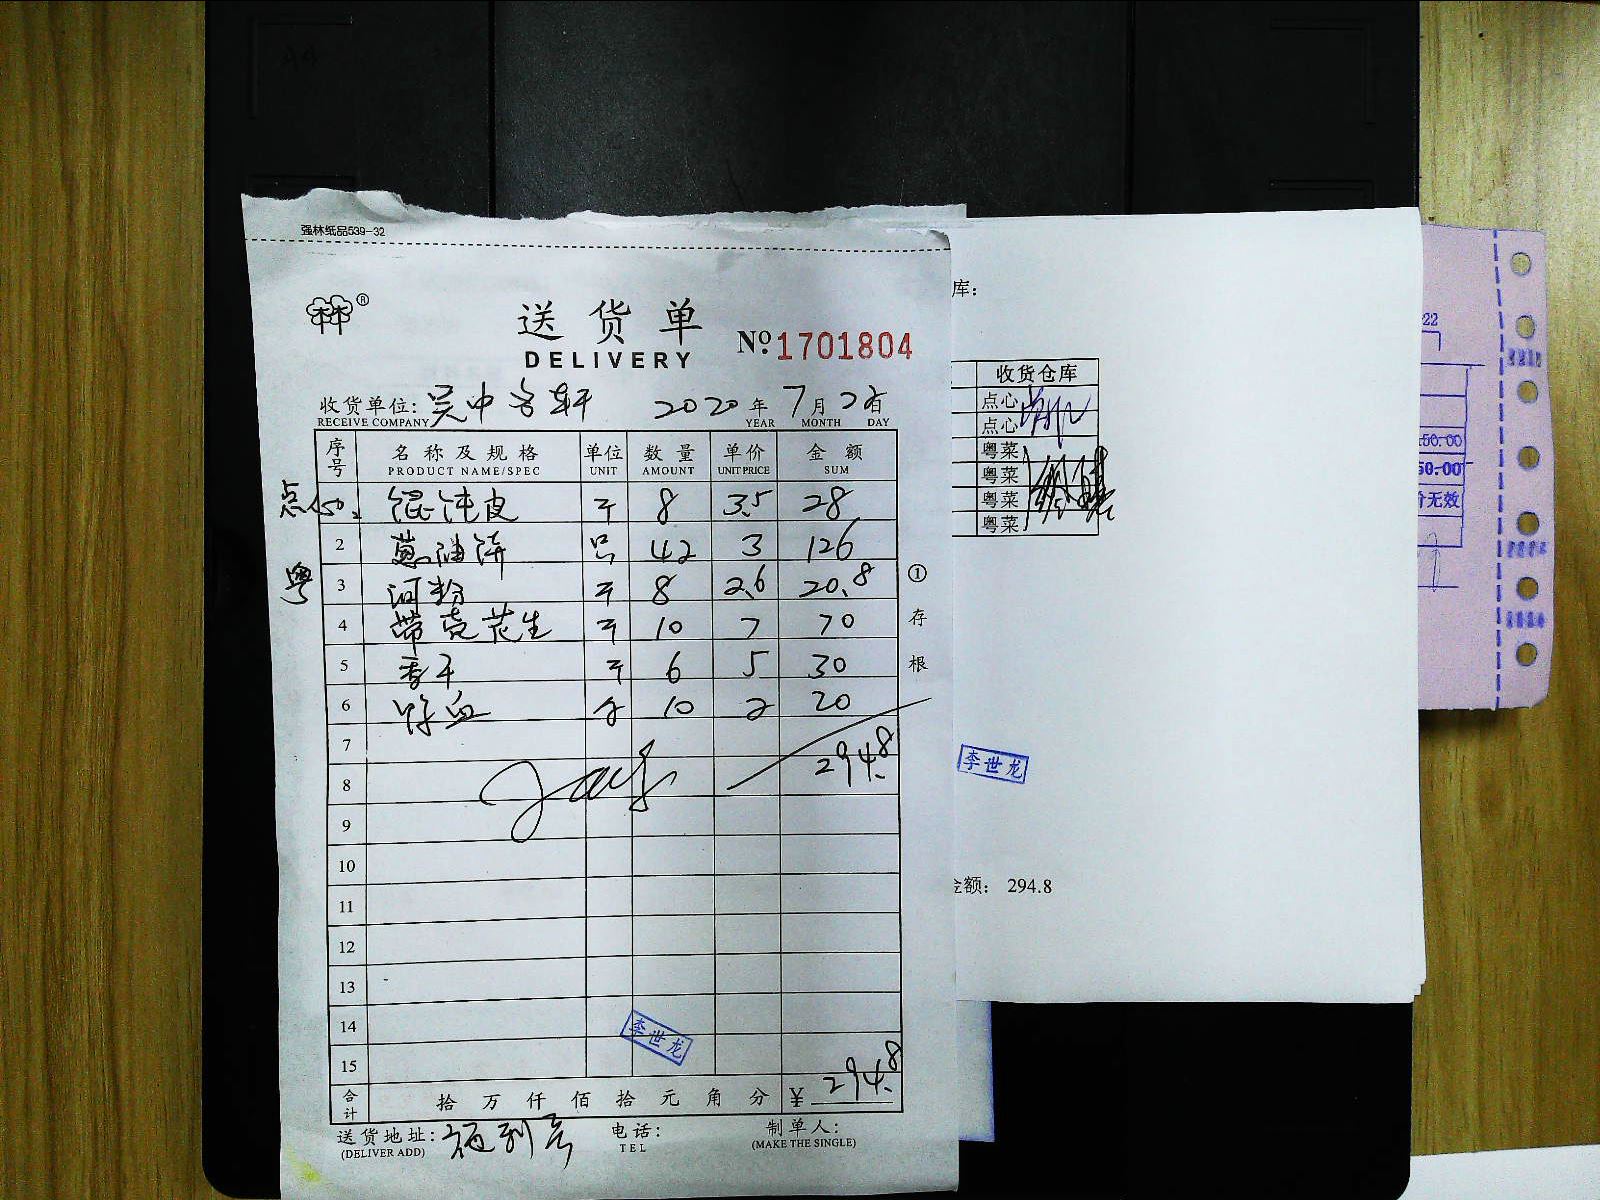 强林纸品539-32
林林®
送货单
DELIVERY
No.1701804
收货单位: 吴中客轩 2020年7月22日
RECEIVE COMPANY YEAR MONTH DAY
序号 名称及规格 单位 数量 单价 金额
PRODUCT NAME/SPEC UNIT AMOUNT UNIT PRICE SUM
点心 馄饨皮 斤 8 3.5 28
2 葱油饼 只 42 3 126
粤 3 河粉 斤 8 2.6 20.8
4 带壳花生 斤 10 7 70
5 香干 斤 6 5 30
6 鸭血 盒 10 2 20
7
8 294.8
9
10
11
12
13
14
15
李世龙
合计 拾万仟佰拾元角分 ¥ 294.8
送货地址:
(DELIVER ADD)
电话:
TEL
制单人:
(MAKE THE SINGLE)
①存根
库:
收货仓库
点心
点心
粤菜
粤菜
粤菜
粤菜
李世龙
金额: 294.8
22
150.00
50.00
价无效